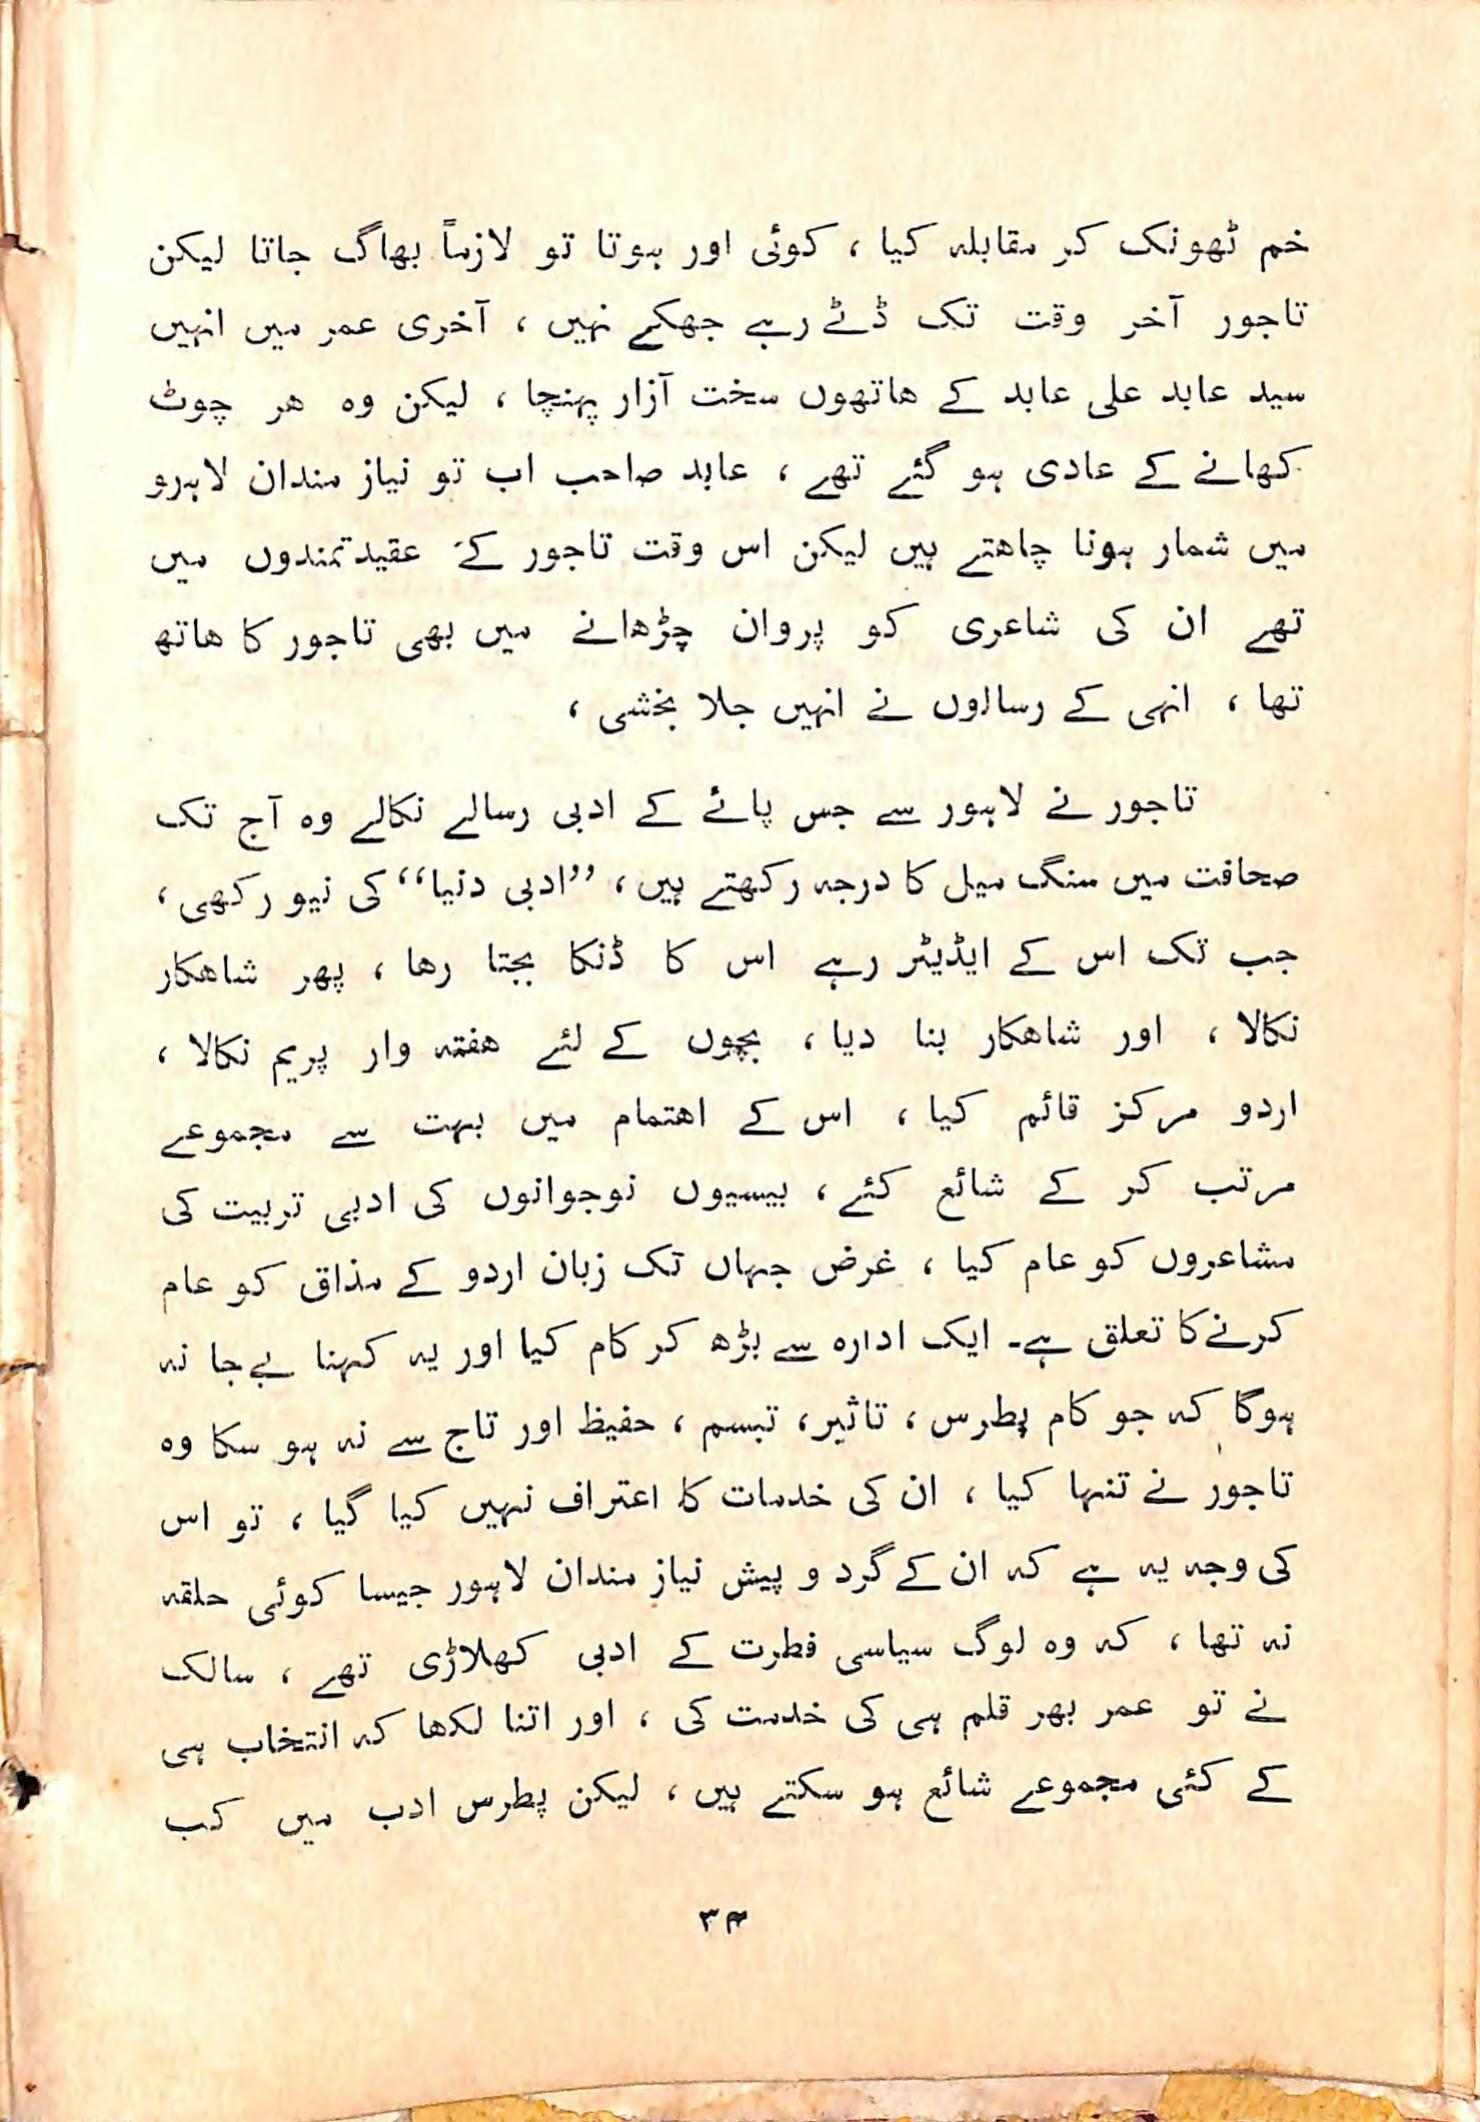 خم ٹھونک کر مقابلہ کیا ، کوئی اور ہوتا تو لازماً بھاگ جاتا لیکن
تاجور آخر وقت تک ڈٹے رہے جھکے نہیں ، آخری عمر میں انہیں
سید عابد علی عابد کے ھاتھوں سخت آزار پہنچا ، لیکن وہ ھر چوٹ
کھانے کے عادی ہو گئے تھے ، عابد صاحب اب تو نیاز مندان لاہرو
میں شمار ہونا چاھتے ہیں لیکن اس وقت تاجور کے عقیدتمندوں میں
تھے ان کی شاعری کو پروان چڑھانے میں بھی تاجور کا ھاتھ
تھا ، انہی کے رسالوں نے انہیں جلا بخشی ،
تاجور نے لاہور سے جس پائے کے ادبی رسالے نکالے وہ آج تک
صحافت میں سنگ میل کا درجہ رکھتے ہیں ، ’’ادبی دنیا‘‘ کی نیو رکھی ،
جب تک اس کے ایڈیٹر رہے اس کا ڈنکا بجتا رھا ، پھر شاھکار
نکالا ، اور شاھکار بنا دیا ، بچوں کے لئے ھفتہ وار پریم نکالا ،
اردو مرکز قائم کیا ، اس کے اھتمام میں بہت سے مجموعے
مرتب کر کے شائع کئے ، بیسیوں نوجوانوں کی ادبی تربیت کی
مشاعروں کو عام کیا ، غرض جہاں تک زبان اردو کے مذاق کو عام
کرنے کا تعلق ہے۔ ایک ادارہ سے بڑھ کر کام کیا اور یہ کہنا بےجا نہ
ہوگا کہ جو کام پطرس ، تاثیر ، تبسم ، حفیظ اور تاج سے نہ ہو سکا وہ
تاجور نے تنہا کیا ، ان کی خدمات کا اعتراف نہیں کیا گیا ، تو اس
کی وجہ یہ ہے کہ ان کے گرد و پیش نیاز مندان لاہور جیسا کوئی حلقہ
نہ تھا ، کہ وہ لوگ سیاسی فطرت کے ادبی کھلاڑی تھے ، سالک
نے تو عمر بھر قلم ہی کی خدمت کی ، اور اتنا لکھا کہ انتخاب ہی
کے کئی مجموعے شائع ہو سکتے ہیں ، لیکن پطرس ادب میں کب
۳۴